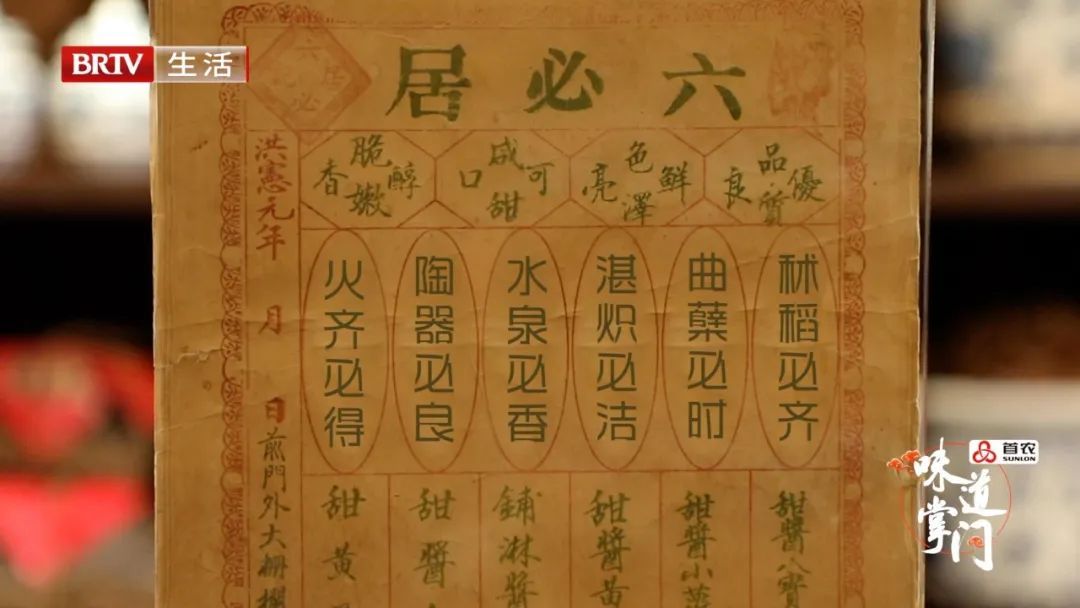 BRTV 生活
六必居
品質優良
色澤鮮亮
咸甜可口
脆嫩醇香
秫稻必齐
曲蘖必时
湛炽必洁
水泉必香
陶器必良
火齐必得
甜醬八寶
甜醬小
甜醬黄
鋪淋醬
甜醬
甜黄
洪憲元年 月 日
前門外大柵欄
首农
SUNLON
味道掌门